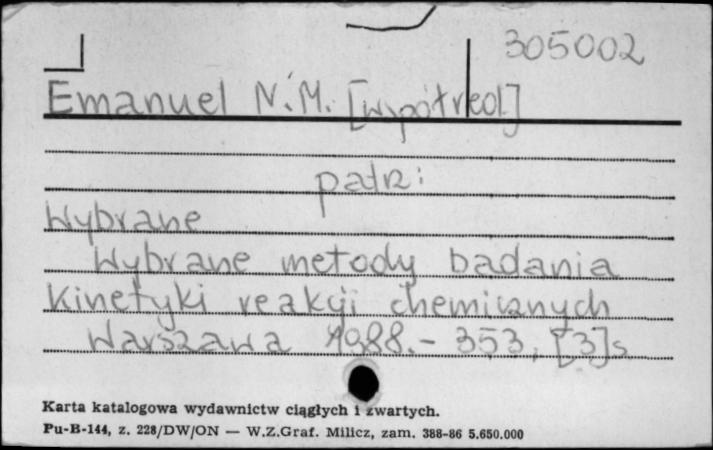 305002
Emanuel N.M. [współred.]
patrz:
Wybrane
Wybrane metody badania
kinetyki reakcji chemicznych
Warszawa 1988.- 353, [3]s
Karta katalogowa wydawnictw ciągłych i zwartych.
Pu-B-144, z. 228/DW/ON — W.Z.Graf. Milicz, zam. 388-86 5.650.000